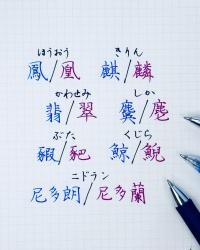 ほうおう きりん
鳳/凰 麒/麟
かわせみ しか
翡/翠 麌/麀
ぶた くじら
豭/豝 鯨/鯢
ニドラン
尼多朗/尼多蘭